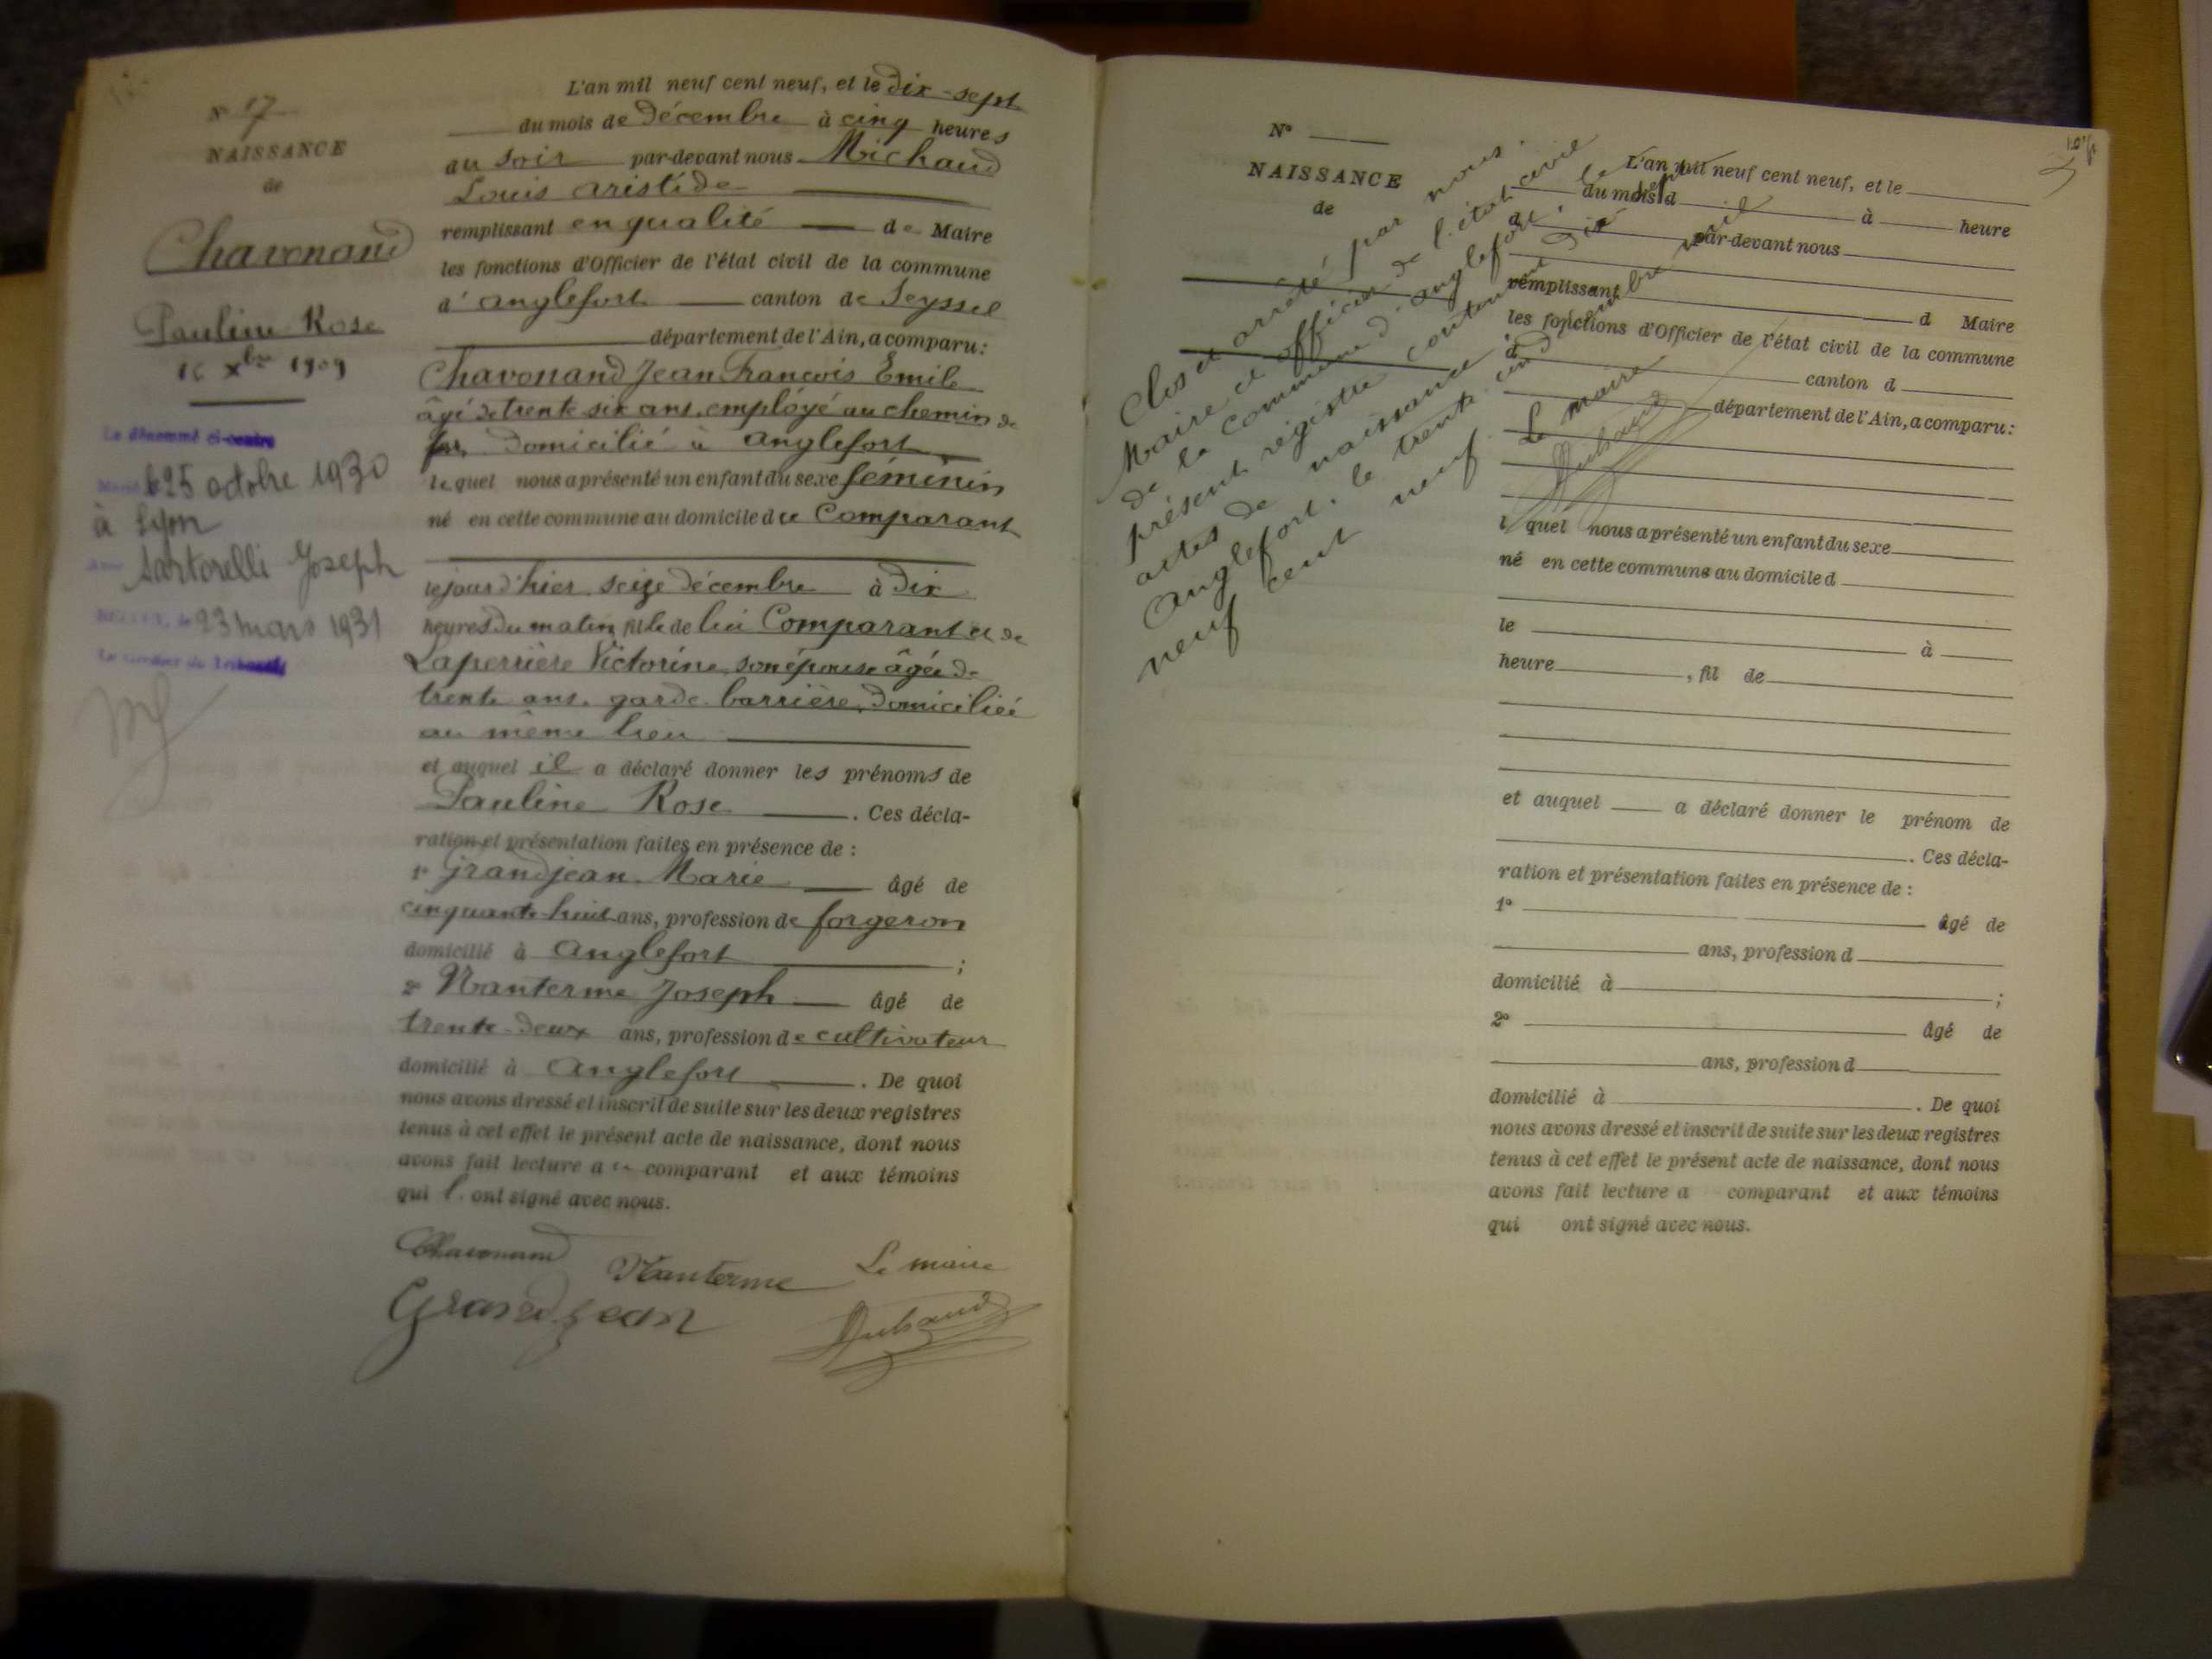 N° 17
NAISSANCE
de
Chavonand
Pauline Rose
16 Xbre 1909
Le dénommé ci-contre
Marié le 25 octobre 1930
à Lyon
Avec Sartorelli Joseph
le 23 mars 1931
Le Greffier du Tribunal
L'an mil neuf cent neuf, et le dix-sept
du mois de décembre à cinq heures
au soir par-devant nous Michaud
Louis Aristide
remplissant en qualité de Maire
les fonctions d'Officier de l'état civil de la commune
d'Anglefort canton de Seyssel
département de l'Ain, a comparu:
Chavonand Jean François Emile
âgé de trente six ans, employé au chemin de
fer, domicilié à Anglefort
lequel nous a présenté un enfant du sexe féminin
né en cette commune au domicile du Comparant
le jour d'hier seize décembre à dix
heures du matin, fille de lui Comparant et de
Laperrière Victorine, son épouse âgée de
trente ans, garde-barrière, domiciliée
au même lieu
et auquel il a déclaré donner les prénoms de
Pauline Rose. Ces décla-
ration et présentation faites en présence de :
1° Grandjean Marie âgé de
cinquante-huit ans, profession de forgeron
domicilié à Anglefort ;
2° Nanterme Joseph âgé de
trente-deux ans, profession de cultivateur
domicilié à Anglefort. De quoi
nous avons dressé et inscrit de suite sur les deux registres
tenus à cet effet le présent acte de naissance, dont nous
avons fait lecture au comparant et aux témoins
qui l'ont signé avec nous.
Chavonand Nanterme Le maire
Grandjean
N°
NAISSANCE
de
Clos et arrêté par nous
Maire et officier de l'état civil
de la Commune d'Anglefort, le
présent registre contenant dix sept
actes de naissance
Anglefort, le trente un décembre mil
neuf cent neuf.
Le maire
L'an mil neuf cent neuf, et le
du mois d à heure
d par-devant nous
remplissant d Maire
les fonctions d'Officier de l'état civil de la commune
d canton d
département de l'Ain, a comparu:
l quel nous a présenté un enfant du sexe
né en cette commune au domicile d
le à
heure , fil de
et auquel a déclaré donner le prénom de
. Ces décla-
ration et présentation faites en présence de :
1° âgé de
ans, profession d
domicilié à ;
2° âgé de
ans, profession d
domicilié à . De quoi
nous avons dressé et inscrit de suite sur les deux registres
tenus à cet effet le présent acte de naissance, dont nous
avons fait lecture a comparant et aux témoins
qui ont signé avec nous.